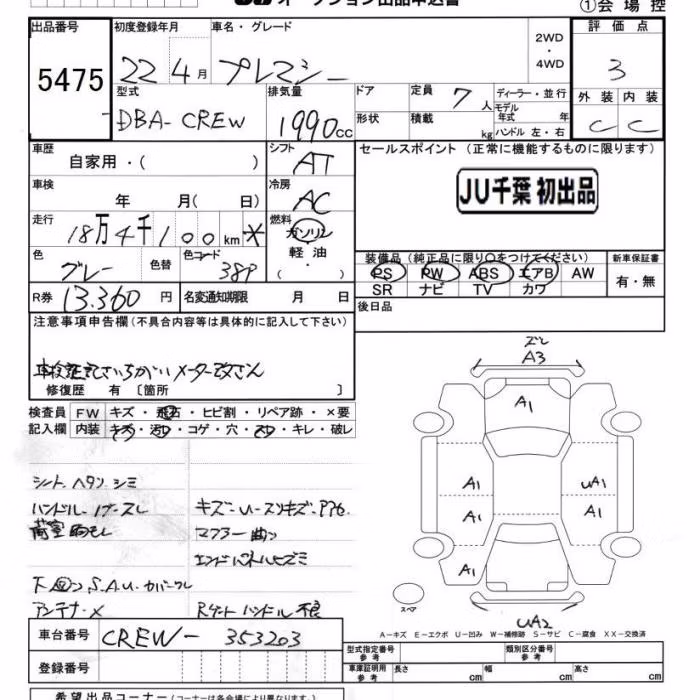 オークション出品申込書
①会場控
出品番号 初度登録年月 車名・グレード 2WD・4WD 評価点
5475 22 4月 プレマシー 3
型式 排気量 ドア 定員 7人 ディーラー・並行 外装 内装
DBA-CREW 1990cc 形状 積載 kg モデル年式 年 C C
ハンドル 左・右
車歴 シフト セールスポイント (正常に機能するものに限ります)
自家用・( ) AT
JU千葉 初出品
車検 冷房
年 月( 日) AC
走行 燃料
18万4千100km * ガソリン
軽油
( ・ )
色 色替 カラーコード 装備品 (純正品に限り○をつけてください) 新車保証書
グレー 389 PS PW ABS エアB AW 有・無
SR ナビ TV カワ
R券 13.360円 名変通知期限 月 日 後日品
注意事項申告欄(不具合内容等は具体的に記入して下さい)
メーター改ざん
修復歴 有 〔箇所 〕
検査員 FW キズ・飛石・ヒビ割・リペア跡・×要
記入欄 内装 キズ・汚レ・コゲ・穴・スレ・キレ・破レ
シート ヘタリ シミ
ハンドル
荷室
マフラー
下回り S.A.U.
アンテナ× Rゲート ハンドル 不良
A3
A1
A1 UA1
A1 A1
A1
スペア
UA2
A-キズ E-エクボ U-凹み W-補修跡 S-サビ C-腐食 XX-交換済
車台番号 CREW-353203
型式指定番号 参考 類別区分番号 参考
登録番号 車庫証明用 参考 長さ cm 幅 cm 高さ cm
希望出品コーナー(コーナーは各会場により異なります。)